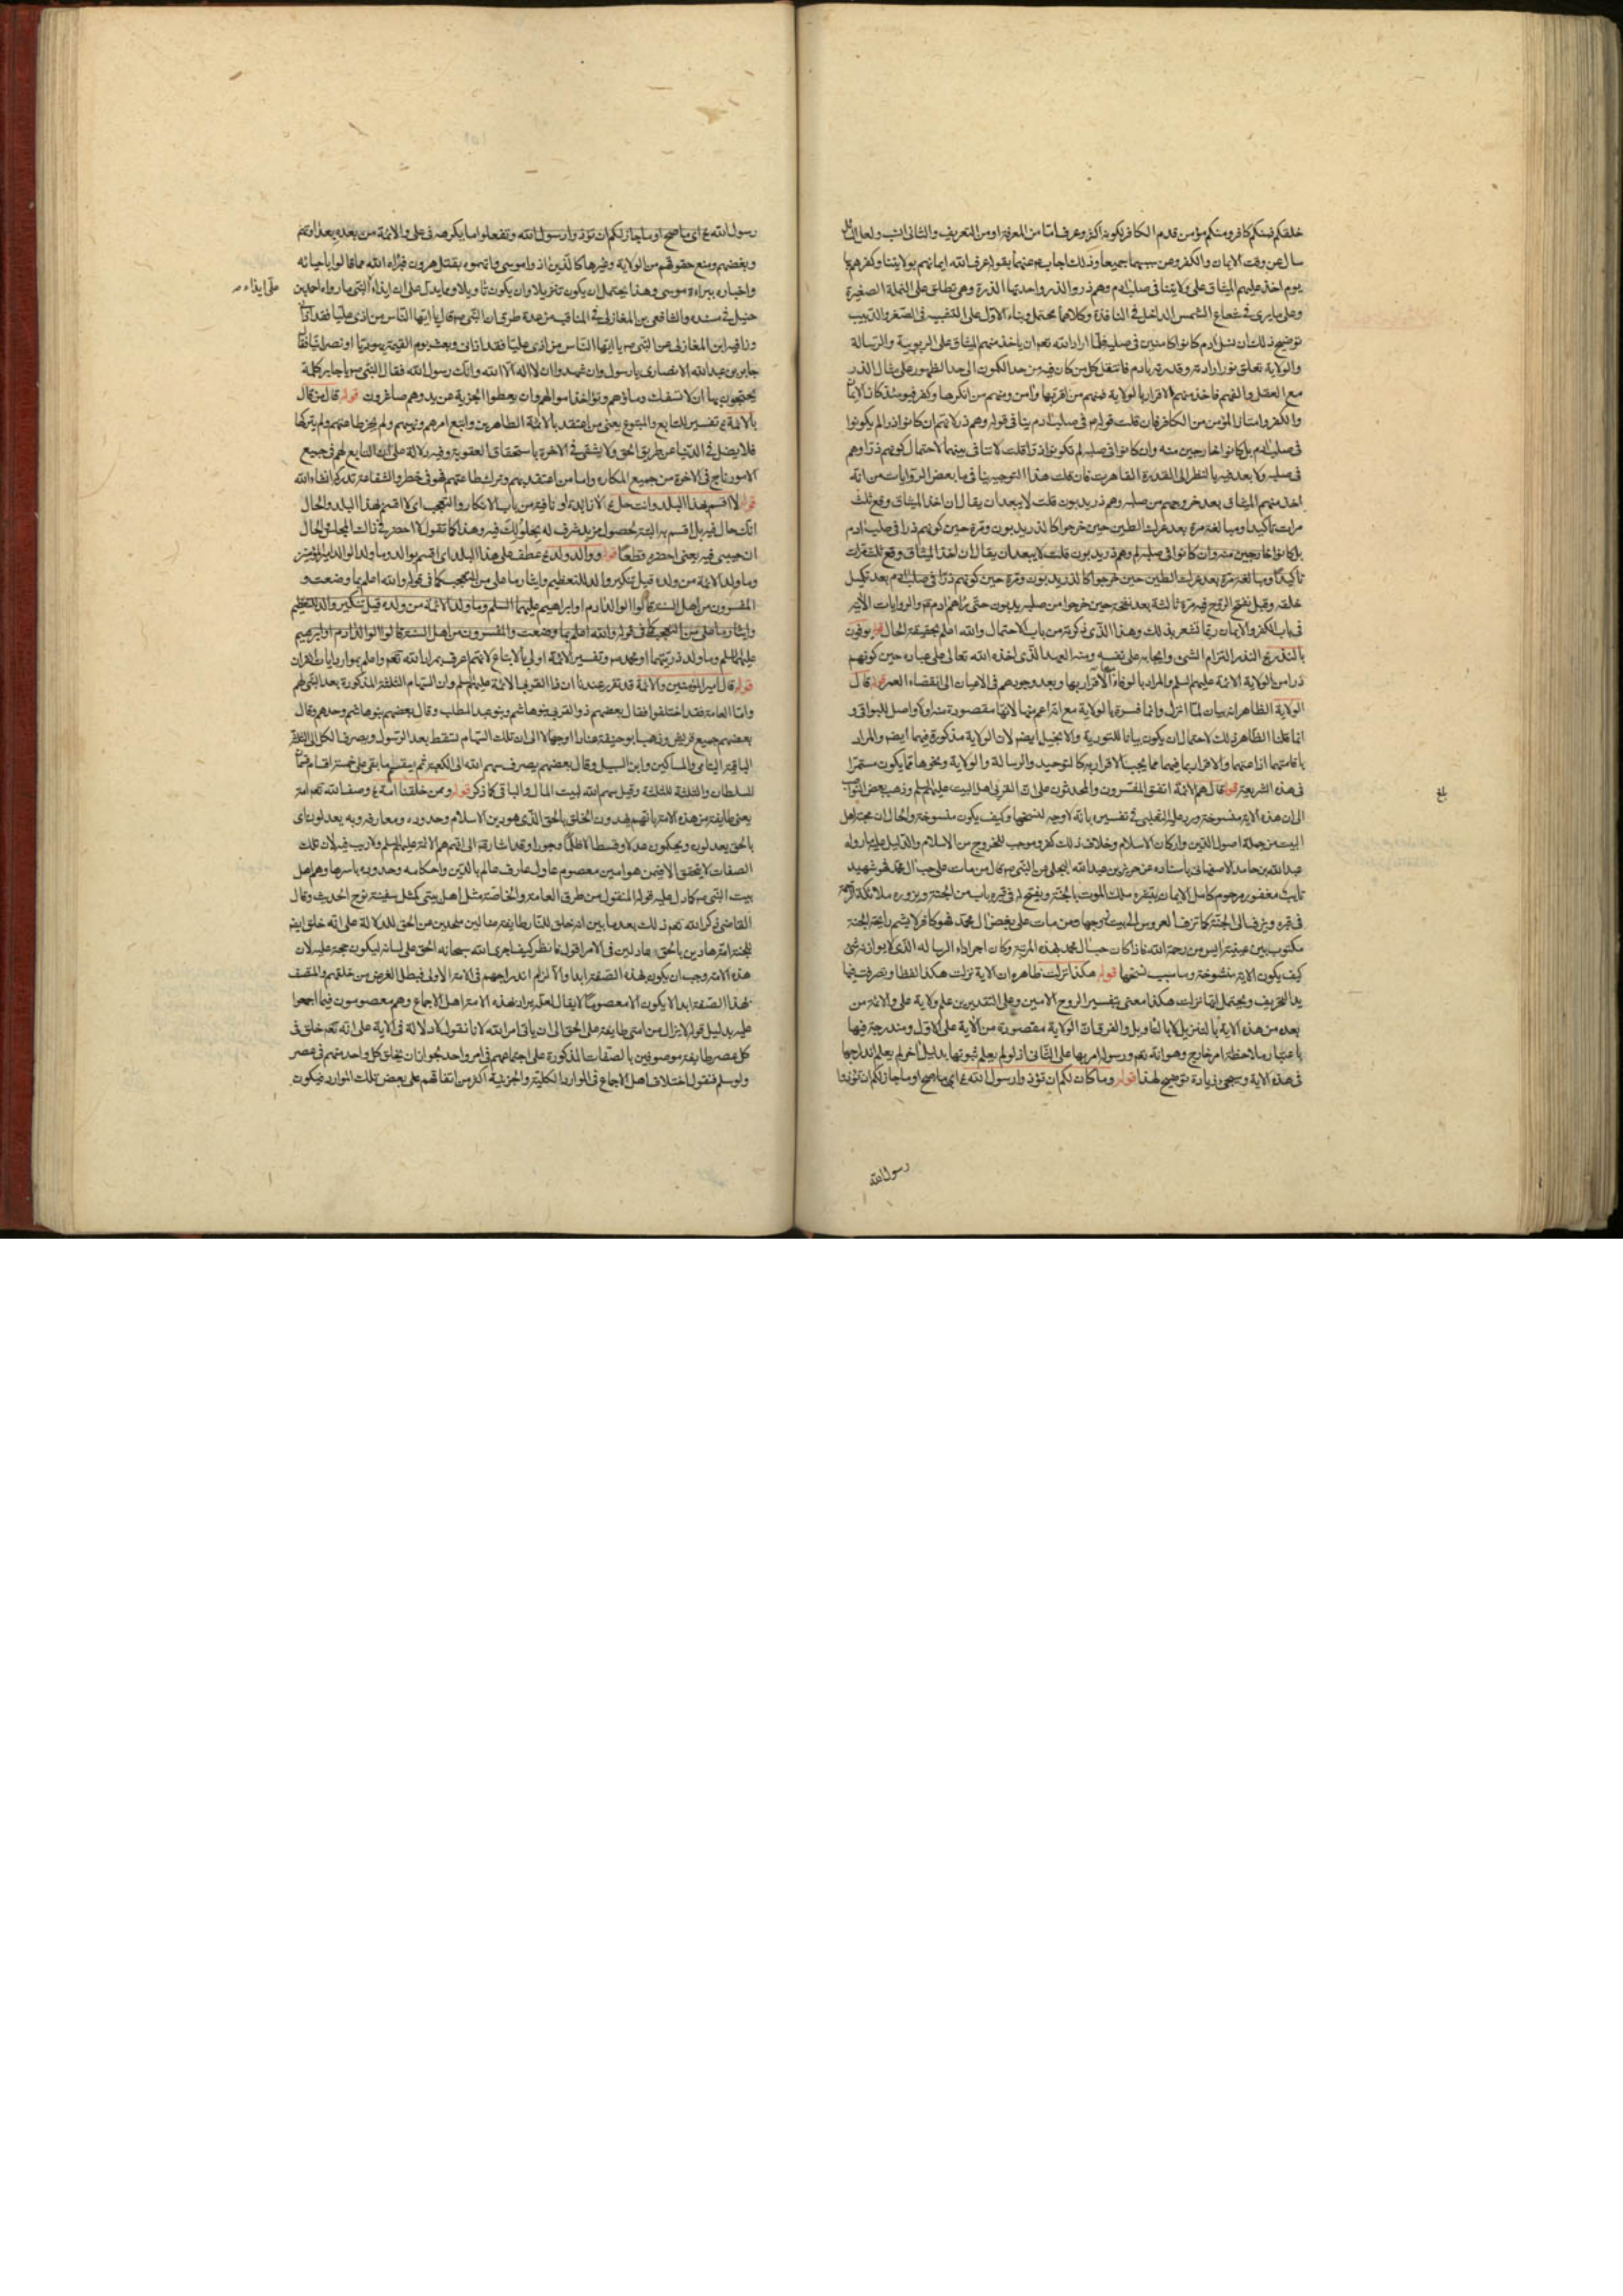 خلقكم فمنكم كافر ومنكم مؤمن قدم الكافر لكونه اكثر وعرف امّا من المعرفة او من التعريف والثانى انسب ولعل السائل
سال عن وقت الايمان والكفر وعن سببهما جميعا ولذلك اجاب ع عنهما بقوله عرف الله ايمانهم بولايتنا وكفرهم بها
يوم اخذ عليهم الميثاق على ولايتنا فى صلب ادم وهم ذر والذر واحدتها الذرة وهى تطلق على النملة الصغيرة
وعلى ما يرى فى شعاع الشمس الداخل فى النافذة وكلاهما محتمل وبناء الاول على التشبيه فى الصغر والدبيب
توضيح ذلك ان نسل ادم كانوا كامنين فى صلبه فلما اراد الله تعم ان ياخذ منهم الميثاق على الربوبية والرسالة
والولاية تعلق نور ارادته وقدرته بادم فانتقل كل من كان فيه من حد الكون الى حد الظهور على مثال الذر
مع العقل والفهم فاخذ منهم الاقرار بالولاية فمنهم من اقر بها وامن ومنهم من انكرها وكفر فيومئذ كان الايمان
والكفر وامتاز المؤمن من الكافر فان قلت قوله ع فى صلب ادم ينافى قوله وهم ذر لانهم ان كانوا ذرا لم يكونوا
فى صلب ادم بل كانوا خارجين منه وان كانوا فى صلبه لم تكونوا ذرا قلت لا تنافى بينهما لاحتمال كونهم ذرا وهم
فى صلبه ولا بعد فيه بالنظر الى القدرة القاهرة فان قلت هذا التوجيه ينافى ما بعض الروايات من انه
اخذ منهم الميثاق بعد خروجهم من صلبه وهم ذر يدبون قلت لا يبعد ان يقال ان اخذ الميثاق وقع ثلث
مرات تأكيدا ومبالغة مرة بعد عرك الطين حين خرجوا كالذر يدبون ومرة حين كونهم ذرا فى صلب ادم
بل كانوا خارجين منه وان كانوا فى صلبه لم وهم ذر يدبون قلت لا يبعد ان يقال ان اخذ الميثاق وقع ثلث مرات
تأكيدا ومبالغة مرة بعد عرك الطين حين خرجوا كالذر يدبون ومرة حين كونهم ذرا فى صلب ادم بعد تكميل
خلقه وقبل نفخ الروح فيه ومرة ثالثة بعد نفخه حين خرجوا من صلبه يدبون حتى رآهم ادم ع والروايات الآتية
فى باب الكفر والايمان ربما تشعر بذلك وهذا الذى ذكرته من باب الاحتمال والله اعلم بحقيقة الحال قوله يوفون
بالنذر يخ النذر التزام الشئ وايجابه على نفسه ومنه العهد الذى اخذه الله تعالى على عباده حين كونهم
ذرا من الولاية الائمة عليهم السلم والمراد بالوفاء الاقرار بها وبعد وجودهم فى الاعيان الى انقضاء العمر قوله قال
الولاية الظاهر انه بيان لما انزل وانما فسره بالولاية مع انه اعم منها لانها مقصودة منه او كواصل للبواقى و
انما قلنا الظاهر ذلك لاحتمال ان يكون بيانا للتورية والانجيل ايضم لان الولاية مذكورة فيهما ايضم والمراد
باقامتهما اذاعتهما والاقرار بما فيهما مما يجب الاقرار به كالتوحيد والرسالة والولاية ونحوها مما يكون مستمرا
فى هذه الشريعة قوله قال هم الائمة اتفق المفسرون والمحدثون على ان القربى اهل البيت عليهم السلم وذهب بعض النواصب
الى ان هذه الآية منسوخة ورد عليه الثعلبى فى تفسيره بانه لا وجه لنسخها وكيف يكون منسوخة والحال ان محبة اهل
البيت من جملة اصول الدين واركان الاسلام وخلاف ذلك كفر وموجب للخروج من الاسلام والدليل عليه ما رواه
عبدالله بن حامد الاصفهانى باسناده عن جرير بن عبدالله البجلى عن النبى ص قال من مات على حب آل محمد فهو شهيد
تايب مغفور مرحوم كامل الايمان يبشره ملك الموت بالجنة ويفتح له فى قبره باب من الجنة ويزوره ملائكة الرحمة
فى قبره ويزف الى الجنة كما تزف العروس الى بيت زوجها ومن مات على بغض آل محمد فهو كافر لا يشم رايحة الجنة
مكتوب بين عينيه ايس من رحمة الله فاذا كان حب آل محمد بهذه المرتبة وكان اجرا داء الرسالة الذى لا يوازنه شئ
كيف يكون الآية منسوخة وما سبب نسخها قوله هكذا نزلت ظاهره ان الاية نزلت هكذا لفظا وتصرفت فيها
يد التحريف ويحتمل انها نزلت هكذا معنى بتفسير الروح الامين وعلى التقديرين علم ولاية على والائمة من
بعده من هذه الاية بالتنزيل لا بالتاويل والفرق ان الولاية مقصودة من الآية على الاول ومندرجة فيها
باعتبار ملاحظة امر خارج وهو انه تعم ورسوله امر بها على الثانى اذ لو لم يعلم ثبوتها بدليل آخر لم يعلم اندراجها
فى هذه الاية وسيجئ زيادة توضيح لهذا قوله وما كان لكم ان تؤذوا رسول الله ع اى ما صح او ما جاز لكم ان تؤذوا
رسول الله
بلغ
رسول الله ع اى ما صح او ما جاز لكم ان تؤذوا رسول الله وتفعلوا ما يكرهه فى على والائمة من بعده بعداوتهم
وبغضهم ومنع حقوقهم من الولاية وغيرها كالذين اذوا موسى فاتهموه بقتل هرون فبرأه الله مما قالوا باحيائه
واخباره ببراءة موسى وهذا يحتمل ان يكون تنزيلا وان يكون تاويلا ومما يدل على ان ايذاء النبى ما رواه احمد بن
على ايذاء ص
حنبل فى مسنده والشافعى بن المغازلى فى المناقب من عدة طرق ان النبى ص قال يا ايها الناس من اذى عليا فقد اذانى
وزاد فيه ابن المغازلى عن النبى ص يا ايها الناس من اذى عليا فقد اذانى وبعث يوم القيمة يهوديا او نصرانيا فقال
جابر بن عبدالله الانصارى يا رسول وان شهد وان لا اله الا الله وانك رسول الله فقال النبى ص يا جابر كلمة
يحتجون بها ان لا تسفك دماؤهم وتؤخذ اموالهم وان يعطوا الجزية عن يد وهم صاغرون قوله قال من قال
بالائمة ع تفسير للتابع والمتبوع يعنى من اعتقد بالائمة الطاهرين واتبع امرهم ونهيهم ولم يجز طاعتهم ولم يتركها
فلا يضل فى الدنيا عن طريق الحق ولا يشقى فى الاخرة باستحقاق العقوبة وفيه دلالة على ان التابع لهم فى جميع
الامور ناج فى الاخرة من جميع المكاره واما من اعتقد بهم وترك طاعتهم فهو فى خطر والشفاعة تدركه انشاء الله
قوله لا اقسم بهذا البلد وانت حل يخ لا زايدة او نافية من باب الانكار والتعجب اى لا اقسم بهذا البلد والحال
انك حال فيه بل اقسم به البتة لحصول مزيد شرف له بحلولك فيه وهذا كما تقول لا احضر فى ذلك المجلس والحال
ان حبيبى فيه يعنى احضره قطعا قوله ووالد وما ولد يخ عطف على هذا البلد اى اقسم بوالد وما ولد الوالد امير المؤمنين
وما ولد الائمة من ولده قيل تنكير والد للتعظيم وايثار ما على من للتعجب كما فى قوله والله اعلم بما وضعت و
المفسرون من اهل السنة قالوا الوالد ادم او ابراهيم عليهما السلم وما ولد الائمة من ولده قيل تنكير والد للتعظيم
وايثار ما على من للتعجب كما فى قوله والله اعلم بما وضعت والمفسرون من اهل السنة قالوا الوالد ادم او ابرهيم
عليهما السلم وما ولد ذريتهما او محمد ص وتفسير الائمة اولى بالاتباع لانهم اعرف بمراد الله تعم واعلم بموارد ايات القران
قوله قال امير المؤمنين والائمة قد تقرر عندنا ان ذا القربى الائمة عليهم السلم وان السهام الثلثة المذكورة بعد النبى لهم
وامّا العامة فقد اختلفوا فقال بعضهم ذو القربى بنو هاشم وبنو عبد المطلب وقال بعضهم بنو هاشم وحدهم وقال
بعضهم جميع قريش وذهب ابو حنيفة الى ان تلك السهام تسقط بعد الرسول ويصرف الكل الى الثلثة
الباقية اليتامى والمساكين وابن السبيل وقال بعضهم يصرف سهم الله الى الكعبة ثم يقسم ما بقى على خمسة اقسام
للسلطان والثلثة للثلثة وقيل سهم الله لبيت المال والباقى كما ذكر قوله وممن خلقنا امة ع وصف الله تعم امة
يعنى طايفة من هذه الامة بانهم يهدون الخلق بالحق الذى هو دين الاسلام وحدوده ومعارفه وبه يعدلون اى
بالحق يعدلون ويحكمون عدلا وقسطا لا ظلما وجورا وقد اشار ع الى انهم هم الائمة عليهم السلم ولا ريب فيه لان تلك
الصفات لا يتحقق الا فيمن هو امين معصوم عادل عارف عالم بالدين واحكامه وحدوده باسرها وهم اهل
بيت النبى ص كما دل عليه قوله المنقول من طرق العامة والخاصة مثل اهل بيتى كمثل سفينة نوح الحديث وقال
القاضى ذكر الله تعم ذلك بعد ما بين انه خلق للنار طايفة ضالين ملحدين عن الحق للدلالة على انه خلق ايضم
للجنة امة هادين بالحق عادلين فى الامر اقول فانظر كيف اجرى الله سبحانه الحق على لسانه ليكون حجة عليه لان
هذه الامة وجب ان يكون بهذه الصفة ابدا والا لزم اندراجهم فى الامة الاولى فبطل الغرض من خلقهم والمتصف
بهذا الصفة ابدا لا يكون الا معصوما لا يقال لعله يراد بهذه الامة اهل الاجماع وهم معصومون فيما اجمعوا
عليه بدليل قوله لا يزال من امتى طايفة على الحق الى ان ياتى امر الله لانا نقول لا دلالة فى الاية على انه تعم خلق فى
كل عصر طايفة موصوفين بالصفات المذكورة على اجتماعهم فى امر واحد بجواز ان يخلق كل واحد منهم فى عصر
ولو سلم فنقول اختلاف اهل الاجماع فى الموارد الكلية والجزئية اكثر من اتفاقهم على بعض تلك الموارد فيكون